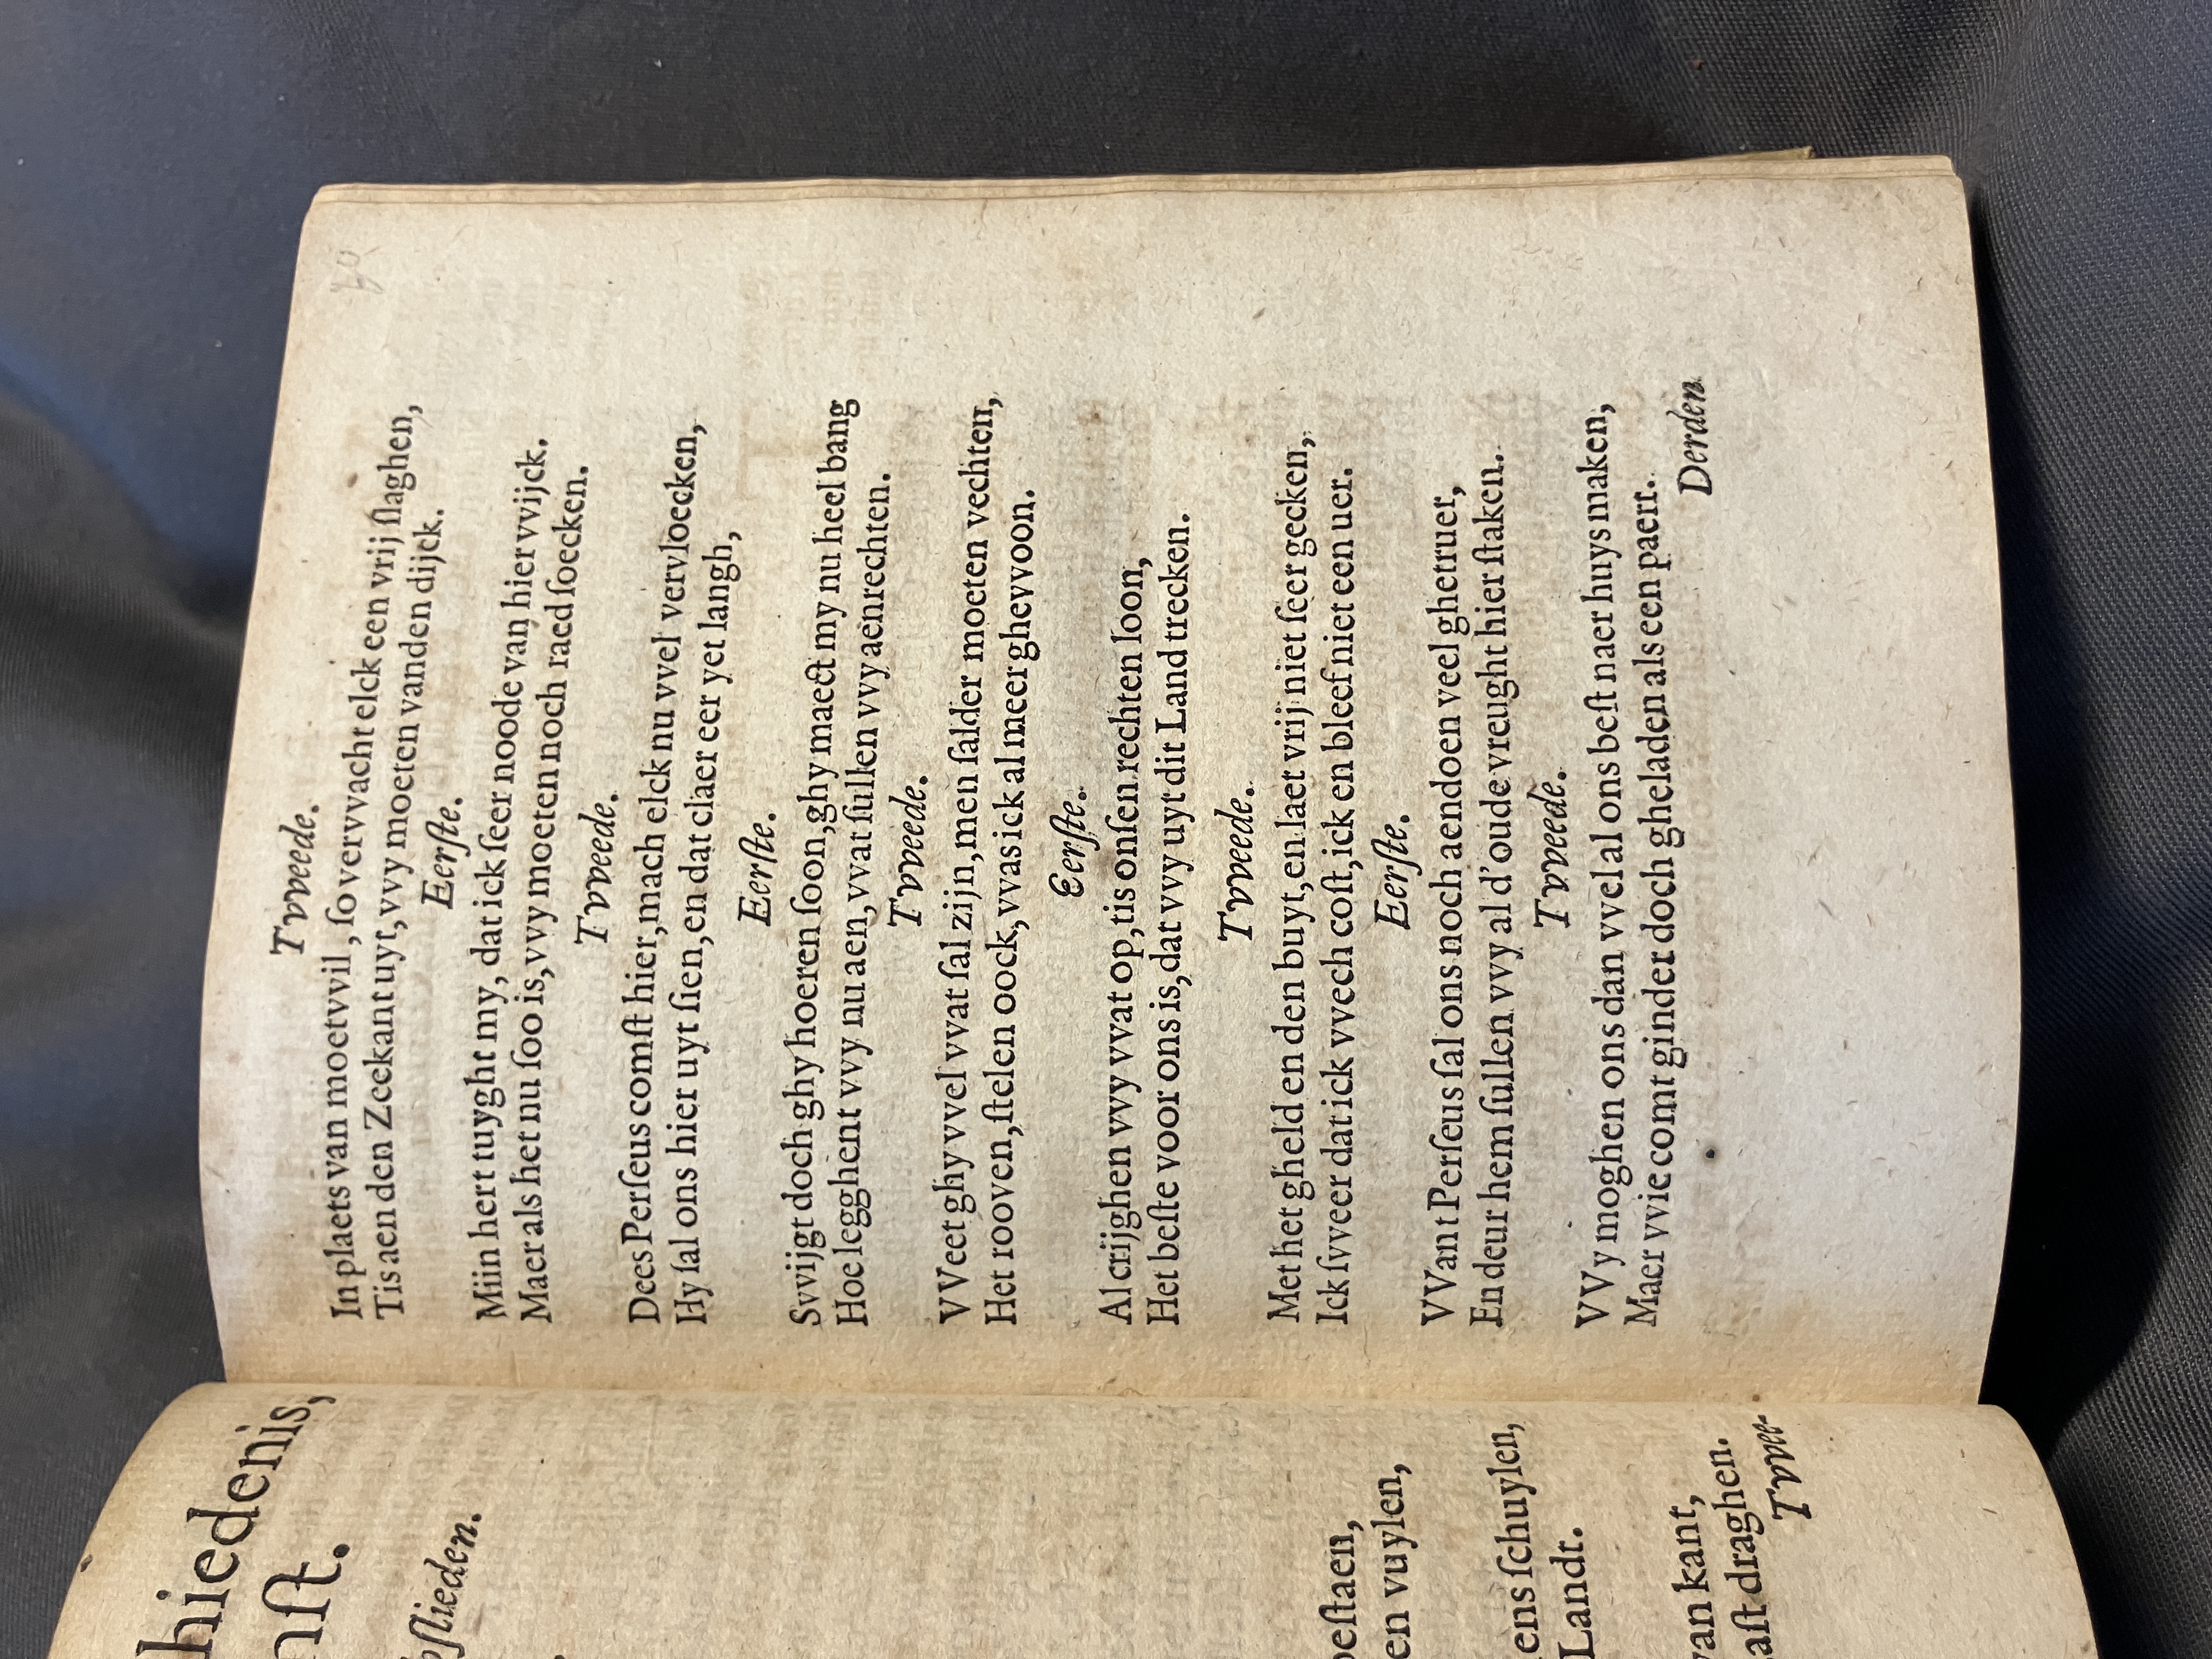 hiedenis,
nſt.
ſlieden.
beſtaen,
en vuylen,
ens ſchuylen,
Landt.
van kant,
aſt draghen.
Tvvee-
Tvveede.
In plaets van moetvvil, ſo vervvacht elck een vrij ſlaghen,
Tis aen den Zeekant uyt, vvy moeten vanden dijck.
Eerſte.
Miin hert tuyght my, dat ick ſeer noode van hier vvijck.
Maer als het nu ſoo is, vvy moeten noch raed ſoecken.
Tvveede.
Dees Perſeus comſt hier, mach elck nu vvel vervloecken,
Hy ſal ons hier uyt ſien, en dat claer eer yet langh,
Eerſte.
Svvijgt doch ghy hoeren ſoon, ghy maeckt my nu heel bang
Hoe legghent vvy nu aen, vvat ſullen vvy aenrechten.
Tvveede.
VVeet ghy vvel vvat ſal zijn, men ſalder moeten vechten,
Het rooven, ſtelen oock, vvas ick al meer ghevvoon.
Eerſte.
Al crijghen vvy vvat op, tis onſen rechten loon,
Het beſte voor ons is, dat vvy uyt dit Land trecken.
Tvveede.
Met het gheld en den buyt, en laet vrij niet ſeer gecken,
Ick ſvveer dat ick vvech coſt, ick en bleef niet een uer.
Eerſte.
VVant Perſeus ſal ons noch aendoen veel ghetruer,
En deur hem ſullen vvy al d'oude vreught hier ſtaken.
Tvveede.
VVy moghen ons dan vvel al ons beſt naer huys maken,
Maer vvie comt ginder doch gheladen als een paert.
Derden